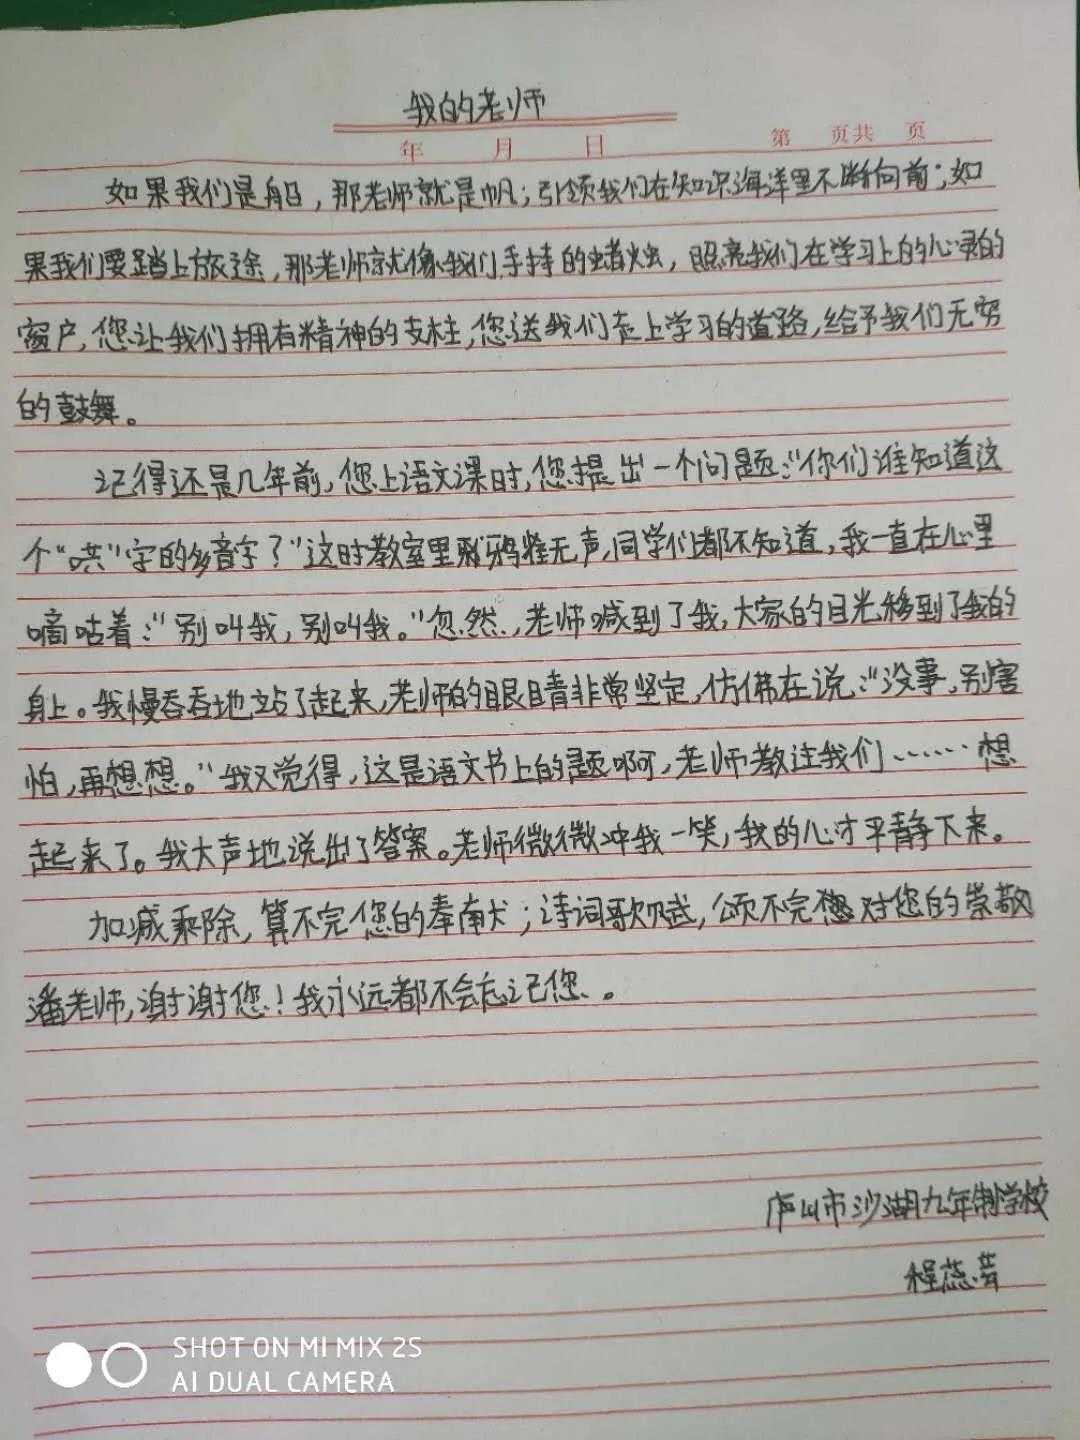 我的老师
年 月 日 第 页共 页
如果我们是船，那老师就是帆；引领我们在知识海洋里不断向前；如
果我们要踏上旅途，那老师就像我们手持的蜡烛，照亮我们在学习上的心灵的
窗户，您让我们拥有精神的支柱，您送我们走上学习的道路，给予我们无穷
的鼓舞。
记得还是几年前，您上语文课时，您提出一个问题：“你们谁知道这
个“哄”字的多音字？”这时教室里鸦雀无声，同学们都不知道，我一直在心里
嘀咕着：“别叫我，别叫我。”忽然，老师喊到了我，大家的目光移到了我的
身上。我慢吞吞地站了起来，老师的眼睛非常坚定，仿佛在说：“没事，别害
怕，再想想。”我又觉得，这是语文书上的题啊，老师教过我们……想
起来了。我大声地说出了答案。老师微微冲我一笑，我的心才平静下来。
加减乘除，算不完您的奉献；诗词歌赋，颂不完对您的崇敬
潘老师，谢谢您！我永远都不会忘记您。
庐山市沙湖九年制学校
程蕊
SHOT ON MI MIX 2S
AI DUAL CAMERA